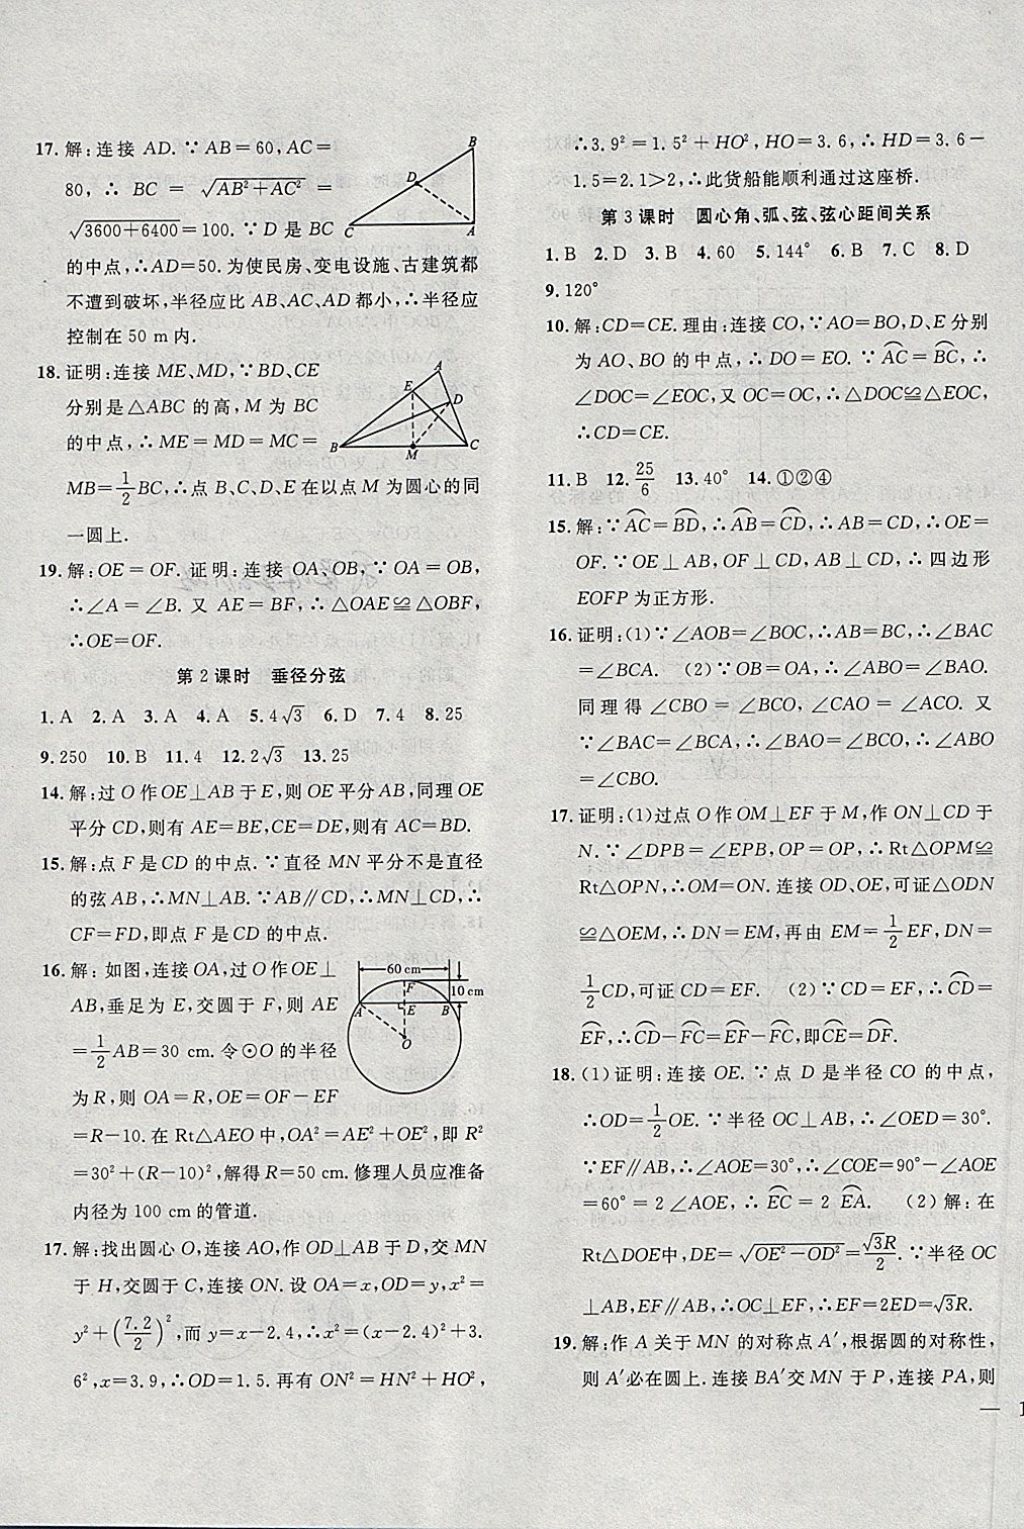 17.解:连接 AD.∵AB=60,AC=
80,∴ BC = √(AB²+AC²) =
√(3600+6400)=100.∵D 是 BC
的中点,∴AD=50.为使民房、变电设施、古建筑都
不遭到破坏,半径应比 AB、AC、AD 都小,∴半径应
控制在 50 m内.
18.证明:连接 ME、MD,∵BD、CE
分别是△ABC 的高,M 为 BC
的中点,∴ME=MD=MC=
MB=1/2BC,∴点 B、C、D、E 在以点 M 为圆心的同
一圆上.
19.解:OE=OF.证明:连接 OA、OB,∵OA=OB,
∴∠A=∠B.又 AE=BF,∴△OAE≌△OBF,
∴OE=OF.
第2课时 垂径分弦
1.A 2.A 3.A 4.A 5.4√3 6.D 7.4 8.25
9.250 10.B 11.4 12.2√3 13.25
14.解:过 O 作 OE⊥AB 于 E,则 OE 平分 AB,同理 OE
平分 CD,则有 AE=BE,CE=DE,则有 AC=BD.
15.解:点 F 是 CD 的中点.∵直径 MN 平分不是直径
的弦 AB,∴MN⊥AB.∵AB∥CD,∴MN⊥CD,∴
CF=FD,即点 F 是 CD 的中点.
16.解:如图,连接 OA,过 O 作 OE⊥
AB,垂足为 E,交圆于 F,则 AE
=1/2AB=30 cm.令⊙O 的半径
为 R,则 OA=R,OE=OF-EF
=R-10.在 Rt△AEO 中,OA²=AE²+OE²,即 R²
=30²+(R-10)²,解得 R=50 cm.修理人员应准备
内径为 100 cm 的管道.
17.解:找出圆心 O,连接 AO,作 OD⊥AB 于 D,交 MN
于 H,交圆于 C,连接 ON.设 OA=x,OD=y,x²=
y²+(7.2/2)²,而 y=x-2.4,∴x²=(x-2.4)²+3.
6²,x=3.9,∴OD=1.5.再有 ON²=HN²+HO²,
B
D
C
A
A
E
D
B
M
C
60 cm
10 cm
F
A
E
B
O
∴3.9²=1.5²+HO²,HO=3.6,∴HD=3.6-
1.5=2.1>2,∴此货船能顺利通过这座桥.
第3课时 圆心角、弧、弦、弦心距间关系
1.B 2.D 3.B 4.60 5.144° 6.B 7.C 8.D
9.120°
10.解:CD=CE.理由:连接 CO,∵AO=BO,D、E 分别
为 AO、BO 的中点,∴DO=EO.∵⌒AC=⌒BC,∴
∠DOC=∠EOC,又 OC=OC,∴△DOC≌△EOC,
∴CD=CE.
11.B 12.25/6 13.40° 14.①②④
15.解:∵⌒AC=⌒BD,∴⌒AB=⌒CD,∴AB=CD,∴OE=
OF.∵OE⊥AB,OF⊥CD,AB⊥CD,∴四边形
EOFP 为正方形.
16.证明:(1)∵∠AOB=∠BOC,∴AB=BC,∴∠BAC
=∠BCA. (2)∵OB=OA,∴∠ABO=∠BAO.
同理得∠CBO=∠BCO,∠CAO=∠ACO.又
∵∠BAC=∠BCA,∴∠BAO=∠BCO,∴∠ABO
=∠CBO.
17.证明:(1)过点 O 作 OM⊥EF 于 M,作 ON⊥CD 于
N.∵∠DPB=∠EPB,OP=OP,∴Rt△OPM≌
Rt△OPN,∴OM=ON.连接 OD、OE,可证△ODN
≌△OEM,∴DN=EM,再由 EM=1/2EF,DN=
1/2CD,可证 CD=EF. (2)∵CD=EF,∴⌒CD=
⌒EF,∴⌒CD-⌒FC=⌒EF-⌒FC,即⌒CE=⌒DF.
18.(1)证明:连接 OE.∵点 D 是半径 CO 的中点,
∴OD=1/2OE.∵半径 OC⊥AB,∴∠OED=30°.
∵EF∥AB,∴∠AOE=30°,∴∠COE=90°-∠AOE
=60°=2∠AOE,∴⌒EC=2⌒EA. (2)解:在
Rt△DOE中,DE=√(OE²-OD²)=√3R/2.∵半径 OC
⊥AB,EF∥AB,∴OC⊥EF,∴EF=2ED=√3R.
19.解:作 A 关于 MN 的对称点 A′,根据圆的对称性,
则 A′必在圆上.连接 BA′交 MN 于 P,连接 PA,则
— 1